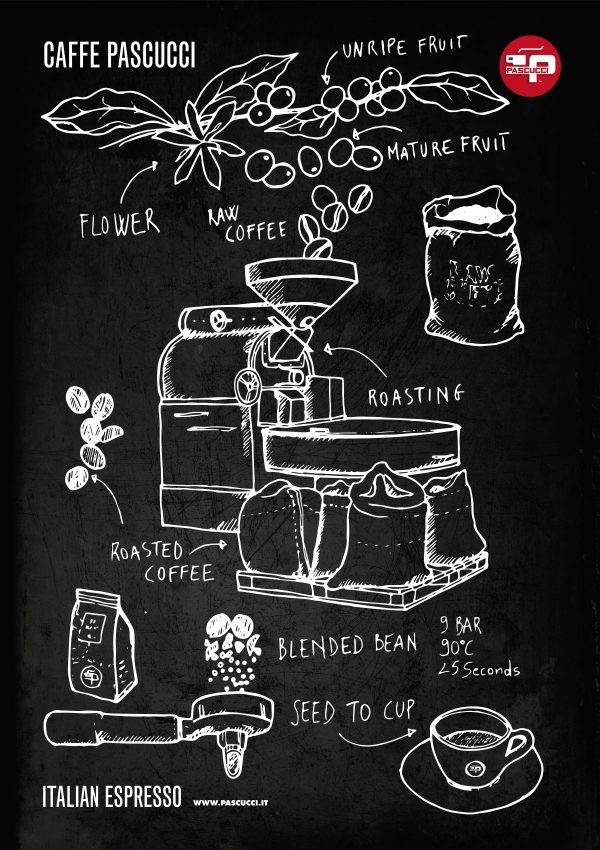 CAFFE PASCUCCI
UNRIPE FRUIT
PASCUCCI
MATURE FRUIT
FLOWER
RAW
COFFEE
RAW
ROASTING
ROASTED
COFFEE
BLENDED BEAN
9 BAR
90°C
25 Seconds
SEED TO CUP
ITALIAN ESPRESSO
WWW.PASCUCCI.IT